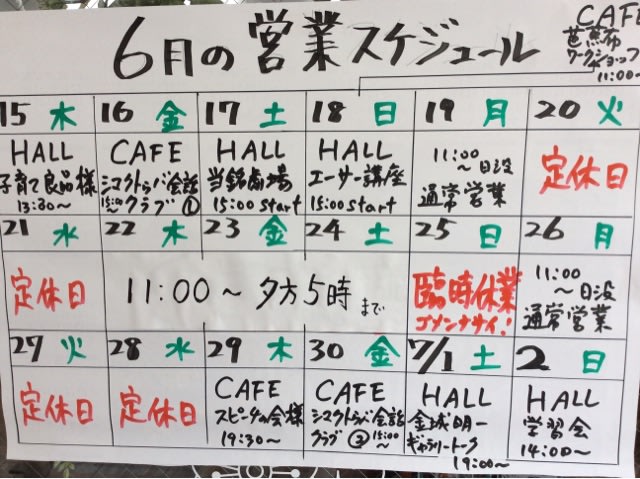 6月の営業スケジュール
CAFE
芭蕉布
ワークショップ
11:00~
15 木 16 金 17 土 18 日 19 月 20 火
HALL
子育て良品様
13:30~
CAFE
シマクトゥバ会話
15:00~ クラブ ①
HALL
当銘劇場
15:00 start
HALL
エーサー講座
15:00 start
11:00
~日没
通常営業
定休日
21 水 22 木 23 金 24 土 25 日 26 月
定休日
11:00 ~ 夕方5時まで
臨時休業
ゴメンナサイ!
11:00
~日没
通常営業
27 火 28 水 29 木 30 金 7/1 土 2 日
定休日
定休日
CAFE
スピーチの会様
19:30~
CAFE
シマクトゥバ会話
クラブ ② 15:00~
HALL
金城明一
ギャラリートーク
19:00~
HALL
学習会
14:00~